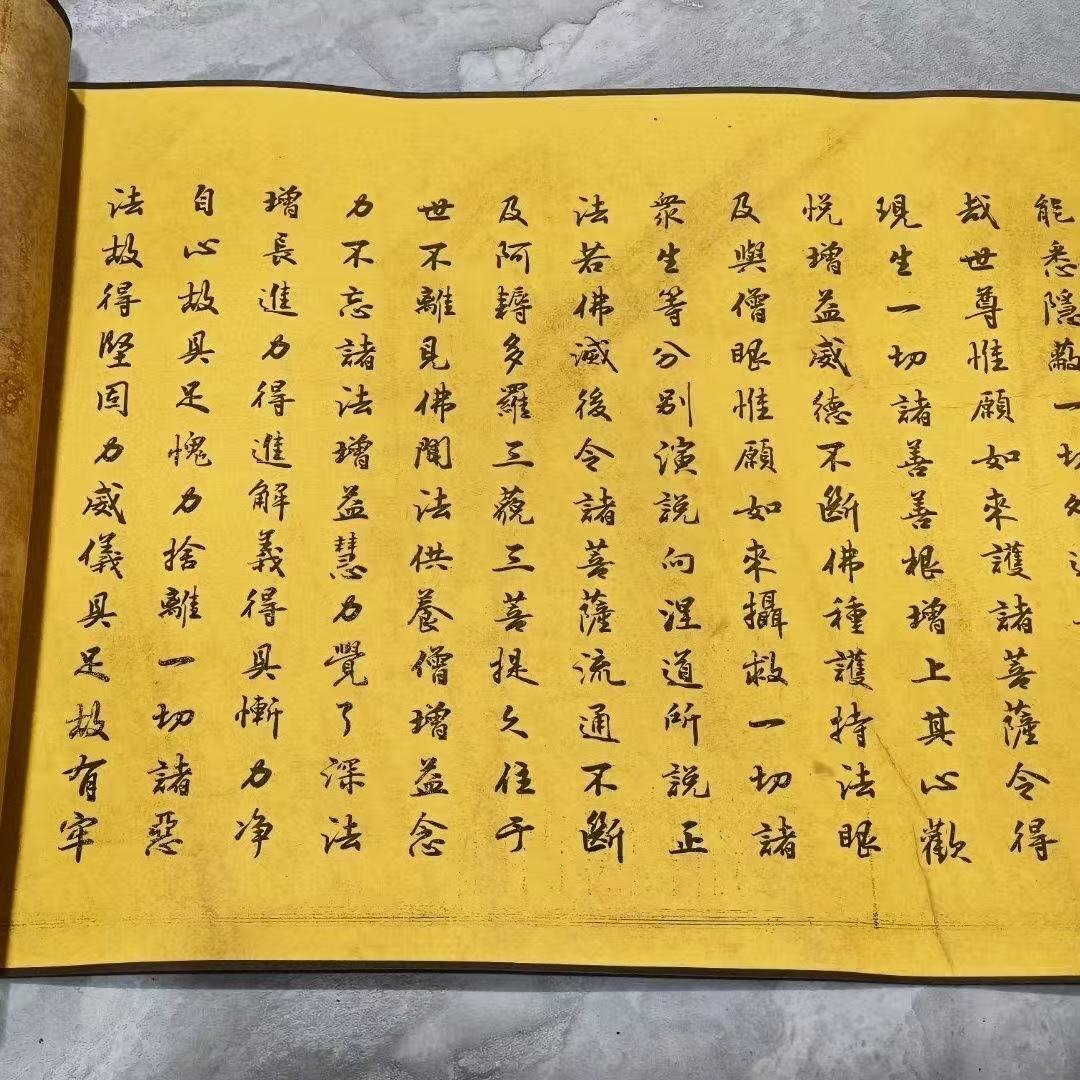 能悉隱蔽一切
哉世尊惟願如來護諸菩薩令得
現生一切諸善善根增上其心歡
悅增益威德不斷佛種護持法眼
及與僧眼惟願如來攝救一切諸
衆生等分別演說向涅道所說正
法若佛滅後令諸菩薩流通不斷
及阿耨多羅三藐三菩提久住于
世不離見佛聞法供養僧增益念
力不忘諸法增益慧力覺了深法
增長進力得進解義得具慚力净
自心故具足愧力捨離一切諸惡
法故得堅固力威儀具足故有牢